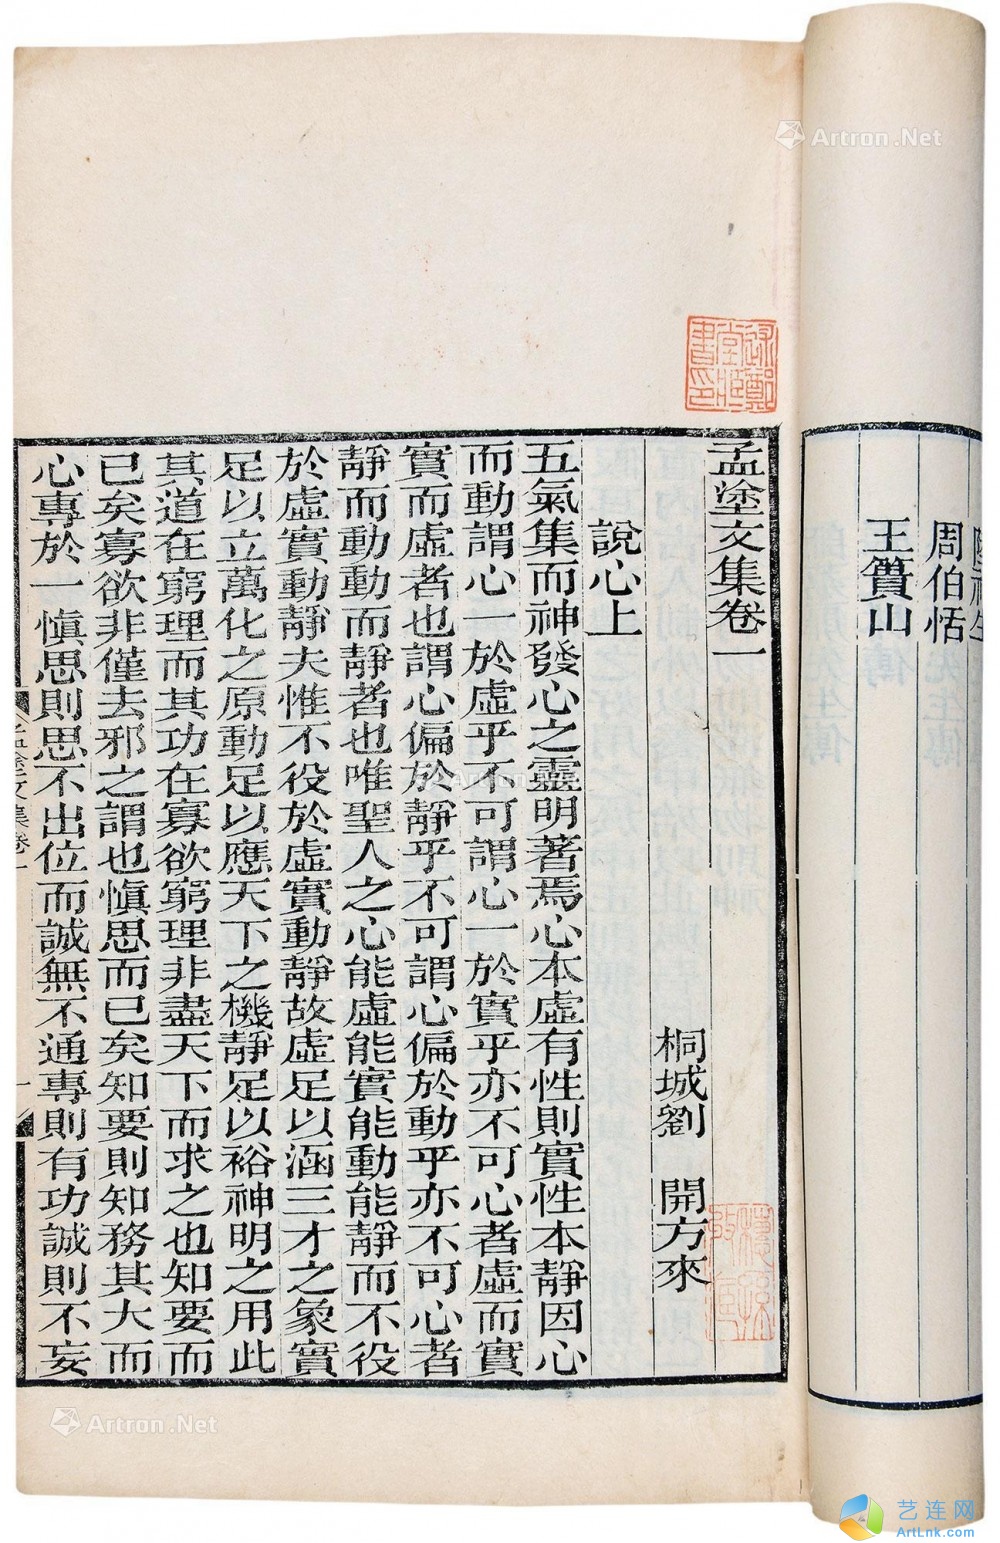 周伯恬
王簣山
孟塗文集卷一
桐城劉　開方來
說心上
五氣集而神發心之靈明著焉心本虛有性則實性本靜因心
而動謂心一於虛乎不可謂心一於實乎亦不可心者虛而實
實而虛者也謂心偏於靜乎不可謂心偏於動乎亦不可心者
靜而動動而靜者也唯聖人之心能虛能實能動能靜而不役
於虛實動靜夫惟不役於虛實動靜故虛足以涵三才之象實
足以立萬化之原動足以應天下之機靜足以裕神明之用此
其道在窮理而其功在寡欲窮理非盡天下而求之也知要而
已矣寡欲非僅去邪之謂也慎思而已矣知要則知務其大而
心專於一慎思則思不出位而誠無不通專則有功誠則不妄
孟塗文集卷一
一
Artron.Net
Artron.Net
艺连网
ArtLnk.com